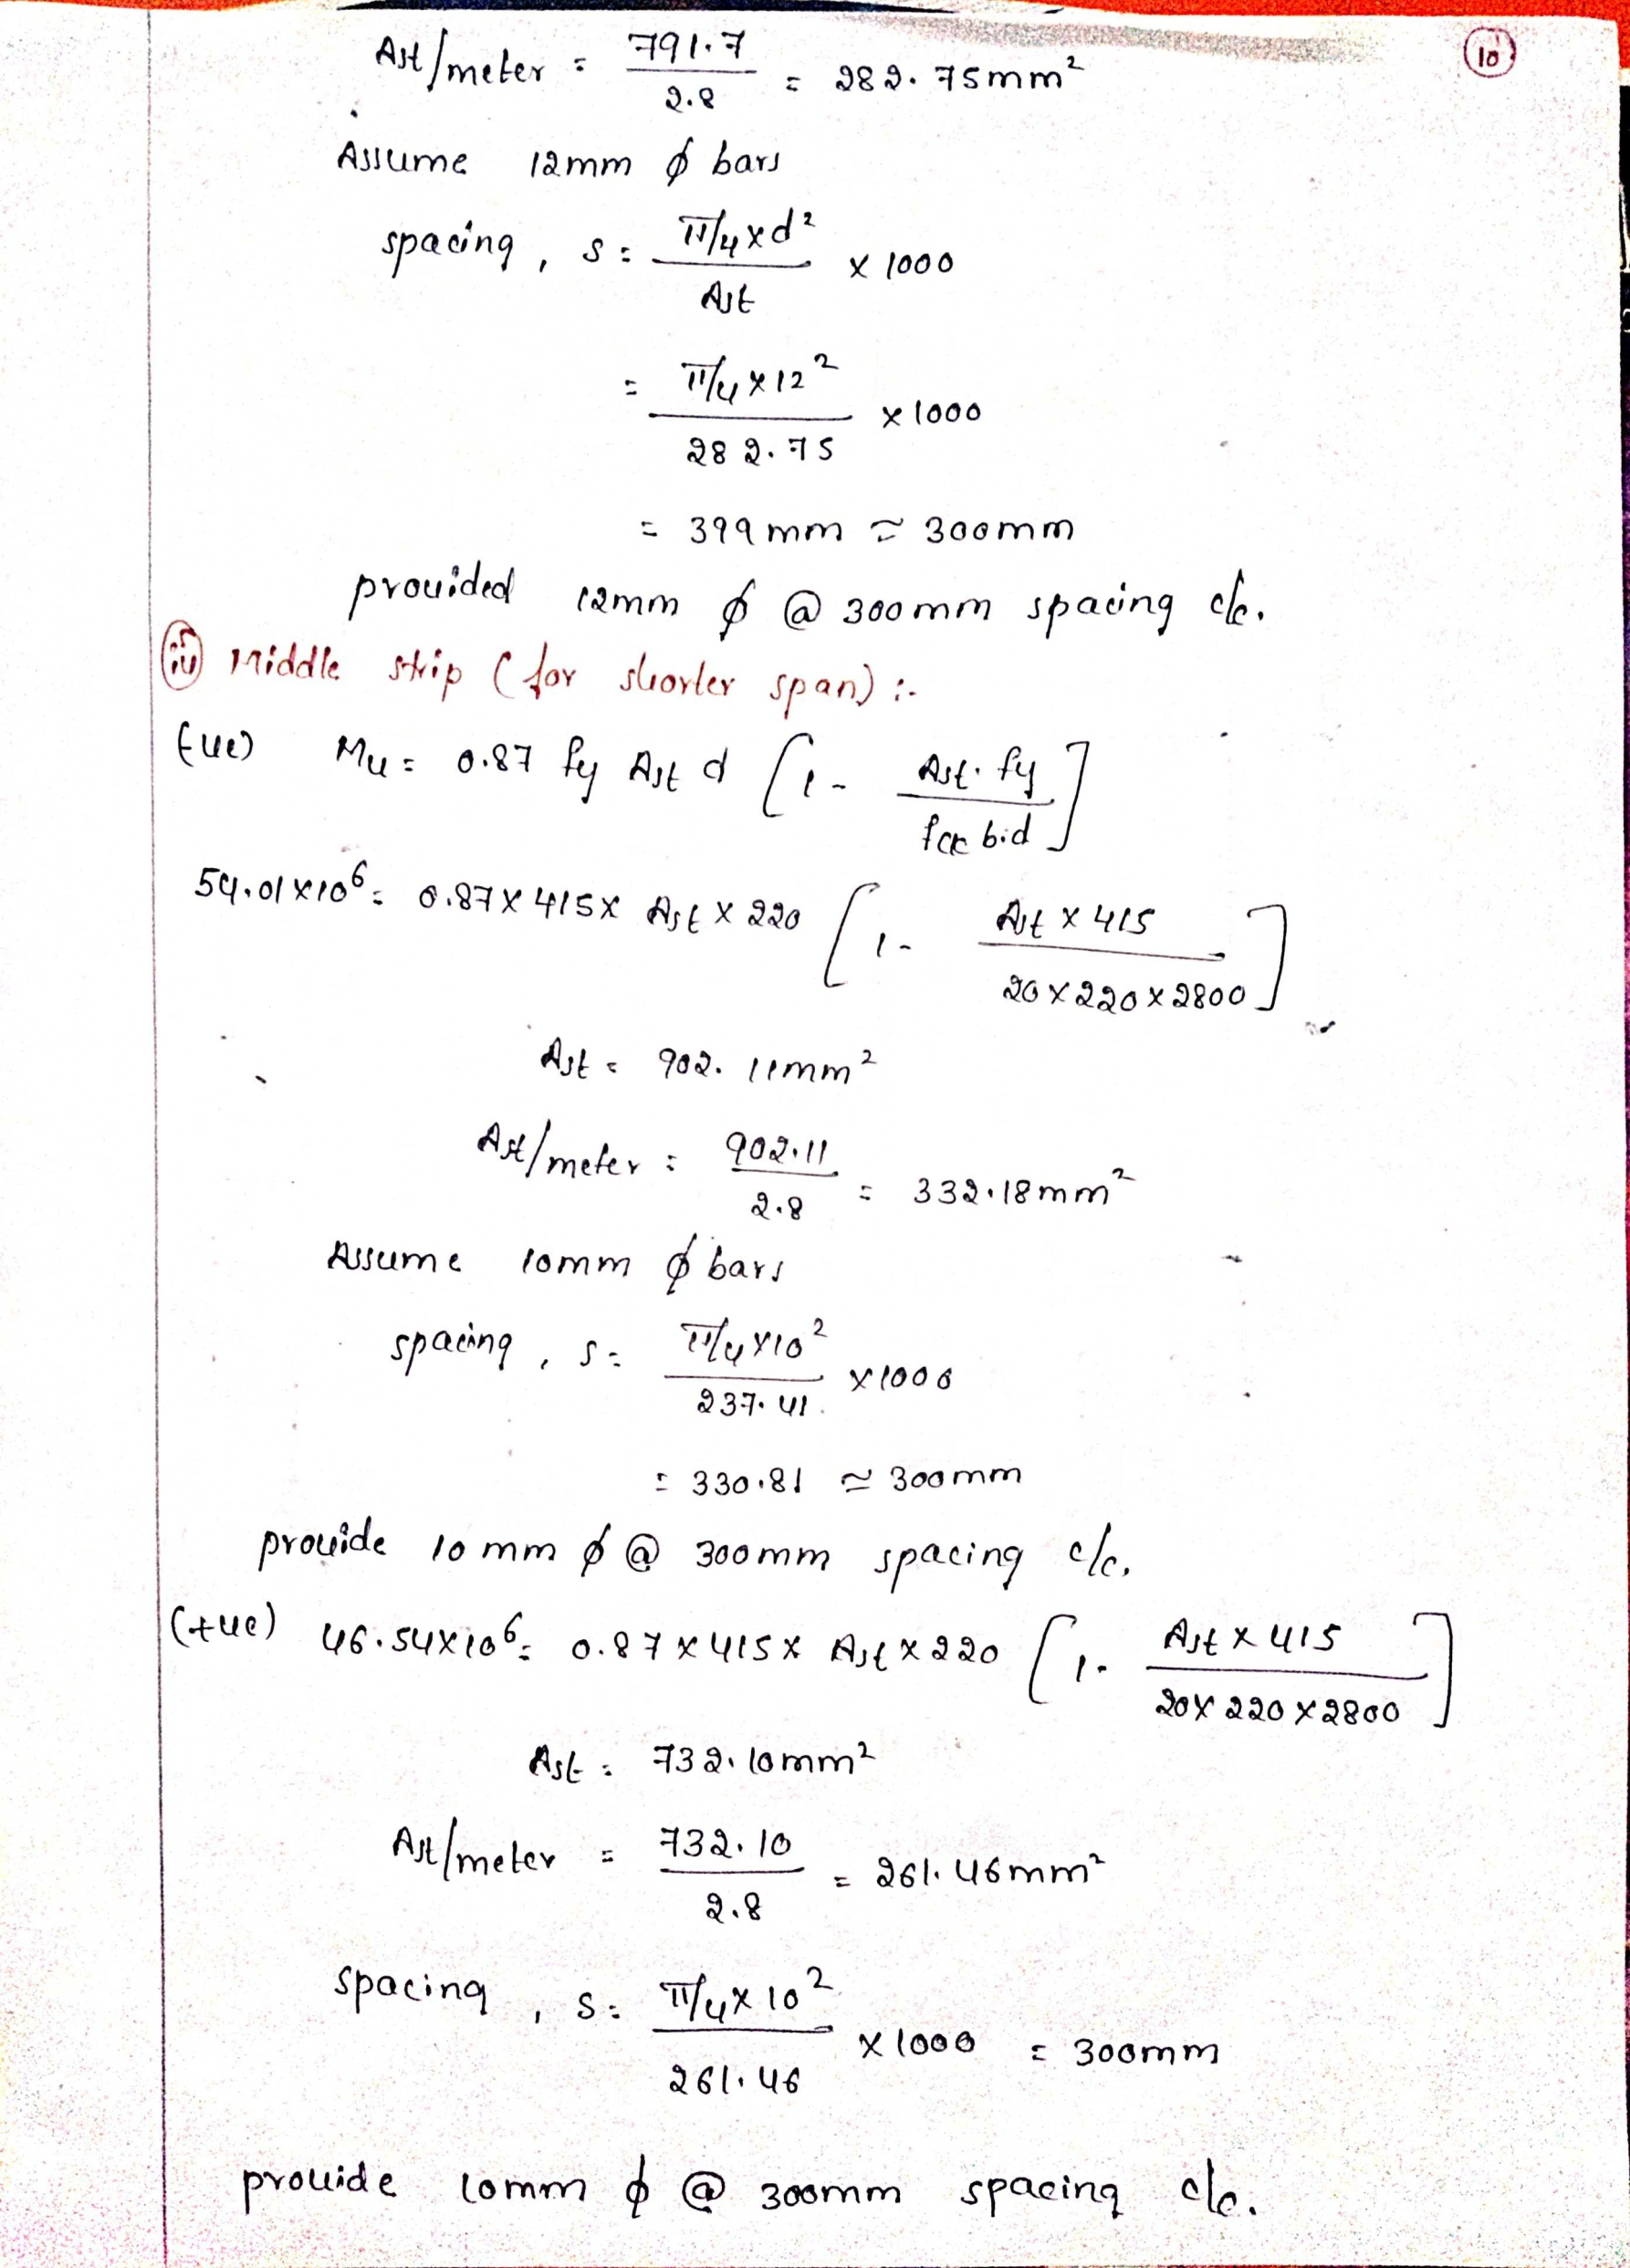 10
Ast/meter = 791.7 / 2.8 = 282.75mm²
Assume 12mm ϕ bars
spacing, s = π/4 x d² / Ast x 1000
= π/4 x 12² / 282.75 x 1000
= 399mm ≃ 300mm
provided 12mm ϕ @ 300mm spacing c/c.
Middle strip (for shorter span) :-
(-ve) Mu = 0.87 fy Ast d [1 - Ast. fy / fck b.d]
54.01x10⁶ = 0.87 x 415 x Ast x 220 [1 - Ast x 415 / 20 x 220 x 2800]
Ast = 902.11mm²
Ast/meter = 902.11 / 2.8 = 332.18mm²
Assume 10mm ϕ bars
spacing, s = π/4 x 10² / 237.41 x 1000
= 330.81 ≃ 300mm
provide 10mm ϕ @ 300mm spacing c/c.
(+ve) 46.54x10⁶ = 0.87 x 415 x Ast x 220 [1 - Ast x 415 / 20 x 220 x 2800]
Ast = 732.10mm²
Ast/meter = 732.10 / 2.8 = 261.46mm²
spacing, s = π/4 x 10² / 261.46 x 1000 = 300mm
provide 10mm ϕ @ 300mm spacing c/c.